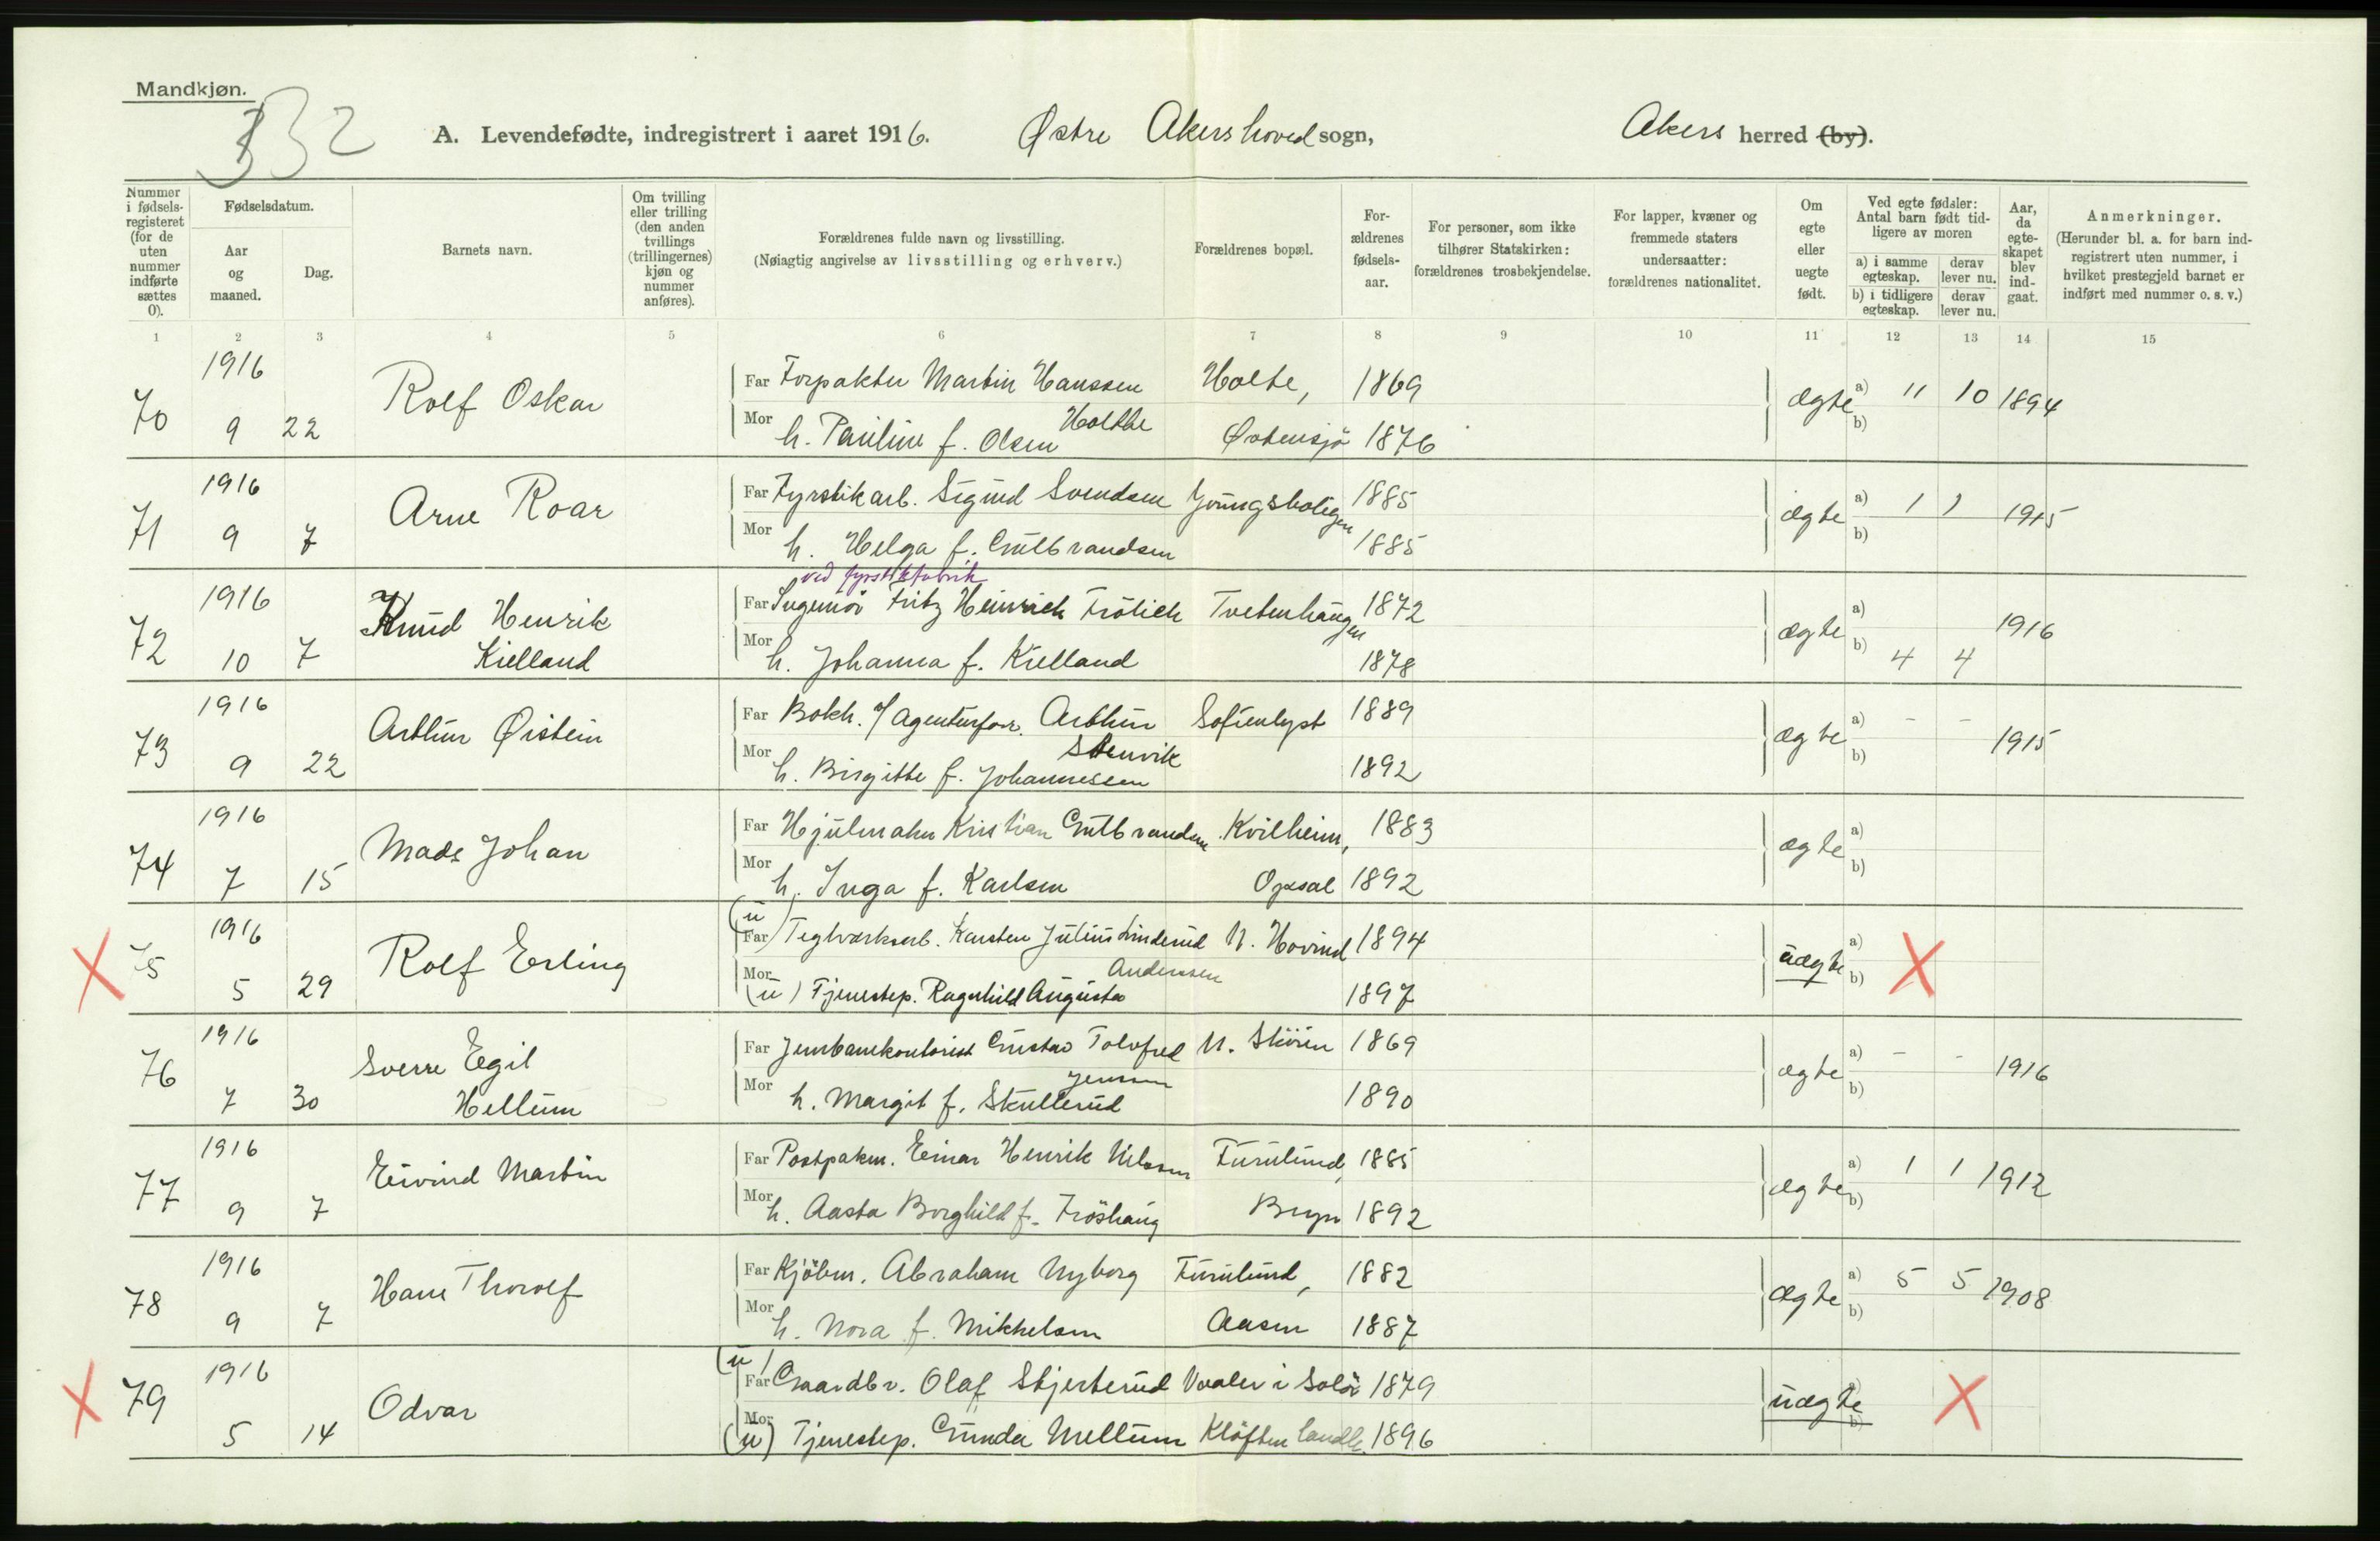 Mandkjøn.
332
A. Levendefødte, indregistrert i aaret 1916. Østre Akers hoved sogn, Akers herred (by).
Nummer i fødsels-registeret (for de uten nummer indførte sættes 0).
Fødselsdatum.
Aar og maaned.
Dag.
Barnets navn.
Om tvilling eller trilling (den anden tvillings (trillingernes) kjøn og nummer anføres).
Forældrenes fulde navn og livsstilling.
(Nøiagtig angivelse av livsstilling og erhverv.)
Forældrenes bopæl.
For-ældrenes fødsels-aar.
For personer, som ikke tilhører Statskirken: forældrenes trosbekjendelse.
For lapper, kvæner og fremmede staters undersaatter: forældrenes nationalitet.
Om egte eller uegte født.
Ved egte fødsler: Antal barn født tid-ligere av moren
a) i samme egteskap. derav lever nu.
b) i tidligere egteskap. derav lever nu.
Aar, da egte-skapet blev ind-gaat.
Anmerkninger.
(Herunder bl. a. for barn ind-registrert uten nummer, i hvilket prestegjeld barnet er indført med nummer o. s. v.)
1 2 3 4 5 6 7 8 9 10 11 12 13 14 15
1916
70 9 22 Rolf Oskar
Far Forpakter Martin Hanssen Holte, 1869
Holthe
Mor h. Pauline f. Olsen Østensjø 1876
ægte a) 11 10 1894
b)
1916
71 9 7 Arne Roar
Far Fyrstikarb. Sigurd Svendsen Youngsboligen 1885
Mor h. Helga f. Gulbrandsen 1885
ægte a) 1 1 1915
b)
ved fyrstikfabrik
1916
72 10 7 Knud Henrik
Kielland
Far Ingeniör Fritz Heinrich Frölich Tvetenhaugen 1872
Mor h. Johanna f. Kielland 1878
ægte a) 1916
b) 4 4
1916
73 9 22 Arthur Øistein
Far Bokh. i/ agenturfor. Arthur Sofienlyst 1889
Stenvik
Mor h. Birgitte f. Johannessen 1892
ægte a) - - 1915
b)
1916
74 7 15 Mads Johan
Far Hjulmaker Kristian Gulbrandsen Kvilheim, 1883
Mor h. Inga f. Karlsen Opsal 1892
ægte a)
b)
1916
X 75 5 29 Rolf Erling
(u) Far Teglværksarb. Karsten Julius Linderud N. Hovind 1894
Andersen
Mor (u) Tjenestep. Ragnhild Augusta 1897
uægte a) X
b)
1916
76 7 30 Sverre Egil
Hellum
Far Jernbanekontorist Gustav Tolofred N. Skøien 1869
Jensen
Mor h. Margit f. Skullerud 1890
ægte a) - - 1916
b)
1916
77 9 7 Eivind Martin
Far Postpakm. Einar Henrik Nilssen Furulund, 1885
Mor h. Aasta Borghild f. Fröshaug Bryn 1892
ægte a) 1 1 1912
b)
1916
78 9 7 Hans Thorolf
Far Kjöbm. Abraham Nyborg Furulund, 1882
Mor h. Nora f. Mikkelsen Aasen 1887
ægte a) 5 5 1908
b)
1916
X 79 5 14 Odvar
(u) Far Gaardbr. Olaf Skjerterud Vaaler i Solör 1879
Mor (u) Tjenestep. Gunda Mellum Klöften landh. 1896
uægte a) X
b)